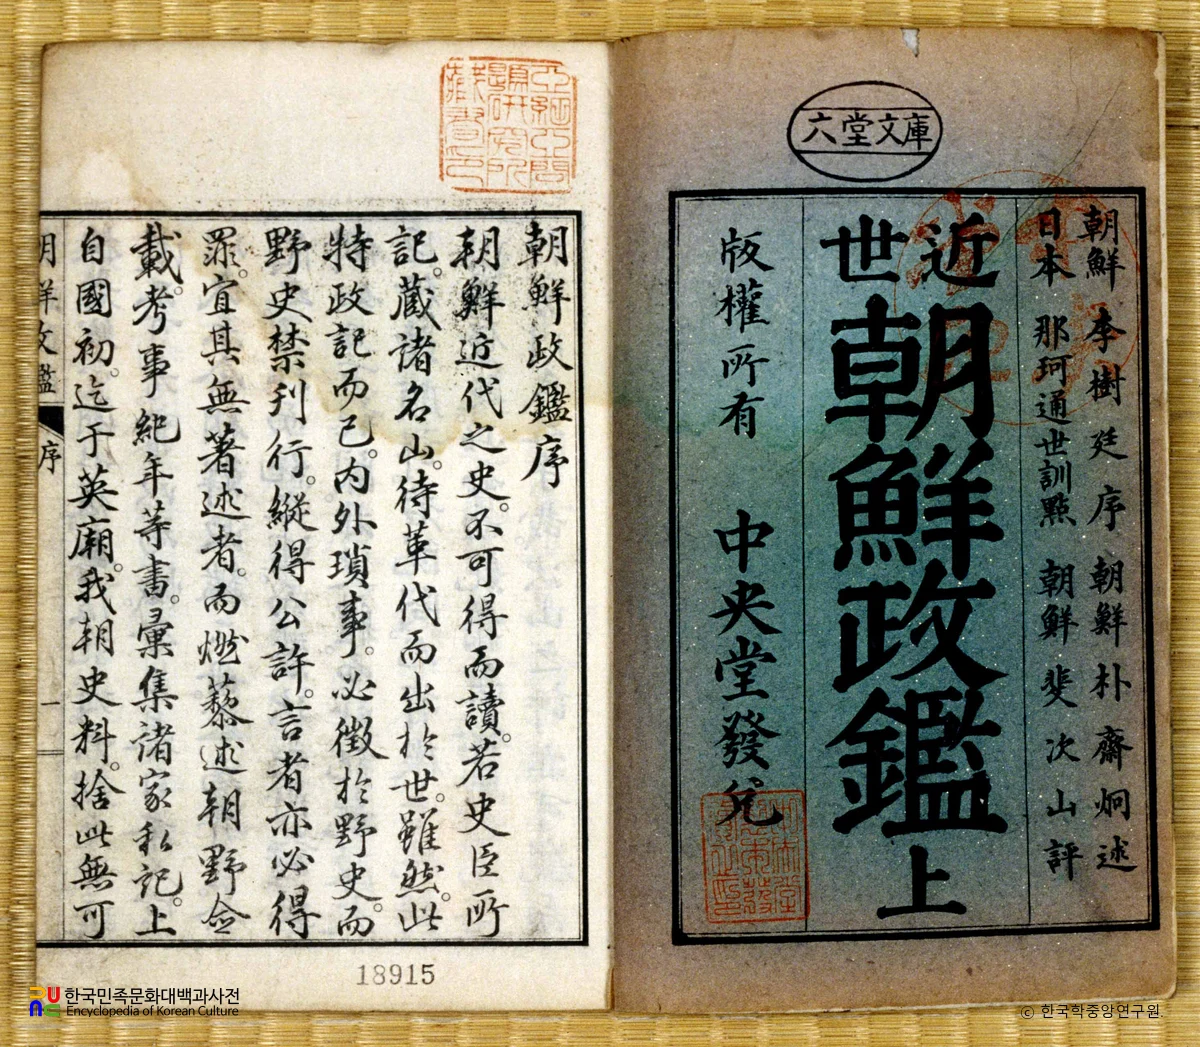 六堂文庫
朝鮮 李樹廷序 朝鮮 朴齋炯述
日本 那珂通世訓點 朝鮮 斐次山評
近世朝鮮政鑑上
版權所有 中央堂發兌
朝鮮政鑑序
朝鮮近代之史。不可得而讀。若史臣所
記。藏諸名山。待革代而出於世。雖然此
特政記而已。内外瑣事。必徵於野史。而
野史禁刊行。縱得公許。言者亦必得
罪。宜其無著述者。而燃藜述朝野僉
載。考事紀年等書。彙集諸家私記。上
自國初。迄于英廟。我朝史料。捨此無可
序
一
18915
한국민족문화대백과사전
Encyclopedia of Korean Culture
ⓒ 한국학중앙연구원.